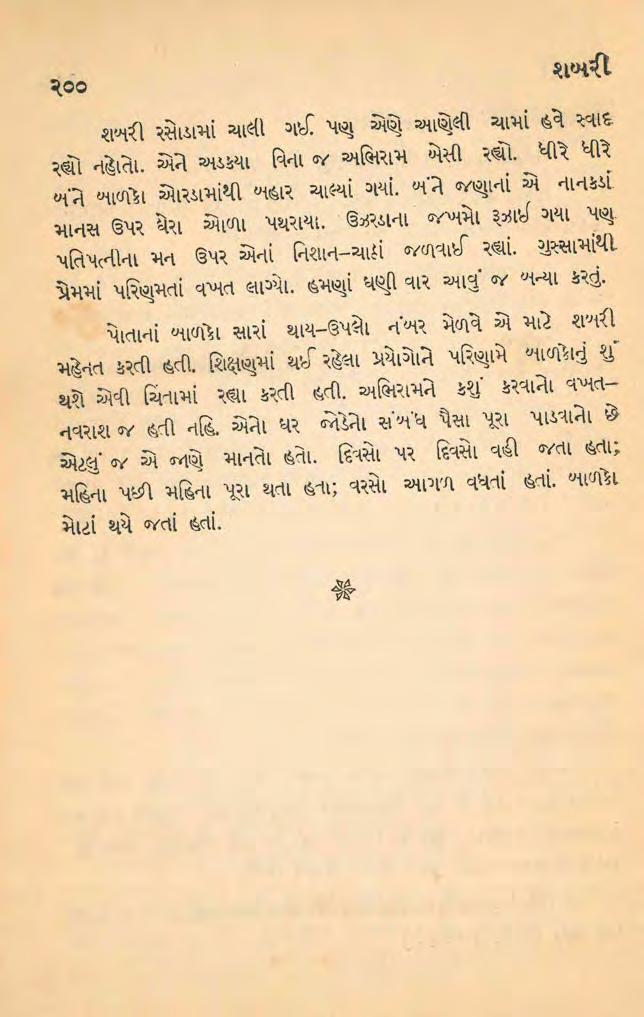 ૨૦૦
શબરી
શબરી રસોડામાં ચાલી ગઈ. પણ એણે આણેલી ચામાં હવે સ્વાદ
રહ્યો નહોતો. એને અડક્યા વિના જ અભિરામ બેસી રહ્યો. ધીરે ધીરે
બંને બાળકો ઓરડામાંથી બહાર ચાલ્યાં ગયાં. બંને જણાનાં એ નાનકડાં
માનસ ઉપર ઘેરા ઓળા પથરાયા. ઉઝરડાના જખમો રૂઝાઈ ગયા પણ
પતિપત્નીના મન ઉપર એનાં નિશાન–ચાઠાં જળવાઈ રહ્યાં. ગુસ્સામાંથી
પ્રેમમાં પરિણમતાં વખત લાગ્યો. હમણાં ઘણી વાર આવું જ બન્યા કરતું.
પોતાનાં બાળકો સારાં થાય–ઉપલો નંબર મેળવે એ માટે શબરી
મહેનત કરતી હતી. શિક્ષણમાં થઈ રહેલા પ્રયોગોને પરિણામે બાળકોનું શું
થશે એવી ચિંતામાં રહ્યા કરતી હતી. અભિરામને કશું કરવાનો વખત–
નવરાશ જ હતી નહિ. એનો ઘર જોડેનો સંબંધ પૈસા પૂરા પાડવાનો છે
એટલું જ એ જાણે માનતો હતો. દિવસો પર દિવસો વહી જતા હતા;
મહિના પછી મહિના પૂરા થતા હતા; વરસો આગળ વધતાં હતાં. બાળકો
મોટાં થયે જતાં હતાં.